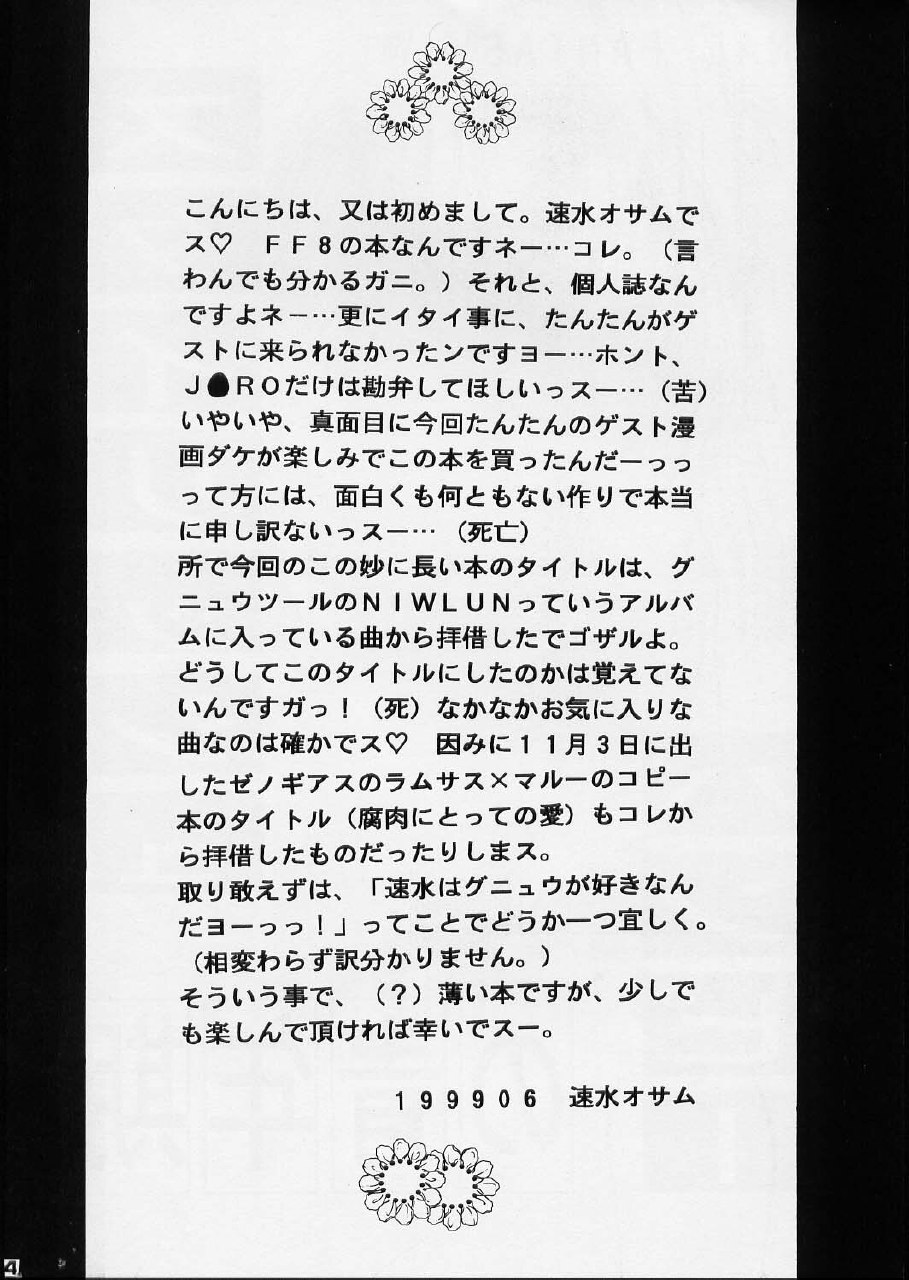 こんにちは、又は初めまして。速水オサムで
ス♡　ＦＦ８の本なんですネー…コレ。（言
わんでも分かるガニ。）それと、個人誌なん
ですよネー…更にイタイ事に、たんたんがゲ
ストに来られなかったンですヨー…ホント、
Ｊ●ＲＯだけは勘弁してほしいっスー…（苦）
いやいや、真面目に今回たんたんのゲスト漫
画ダケが楽しみでこの本を買ったんだーっっ
って方には、面白くも何ともない作りで本当
に申し訳ないっスー…（死亡）
所で今回のこの妙に長い本のタイトルは、グ
ニュウツールのＮＩＷＬＵＮっていうアルバ
ムに入っている曲から拝借したでゴザルよ。
どうしてこのタイトルにしたのかは覚えてな
いんですガっ！（死）なかなかお気に入りな
曲なのは確かでス♡　因みに１１月３日に出
したゼノギアスのラムサス×マルーのコピー
本のタイトル（腐肉にとっての愛）もコレか
ら拝借したものだったりしまス。
取り敢えずは、「速水はグニュウが好きなん
だヨーっっ！」ってことでどうか一つ宜しく。
（相変わらず訳分かりません。）
そういう事で、（？）薄い本ですが、少しで
も楽しんで頂ければ幸いでスー。
１９９９０６　速水オサム
4